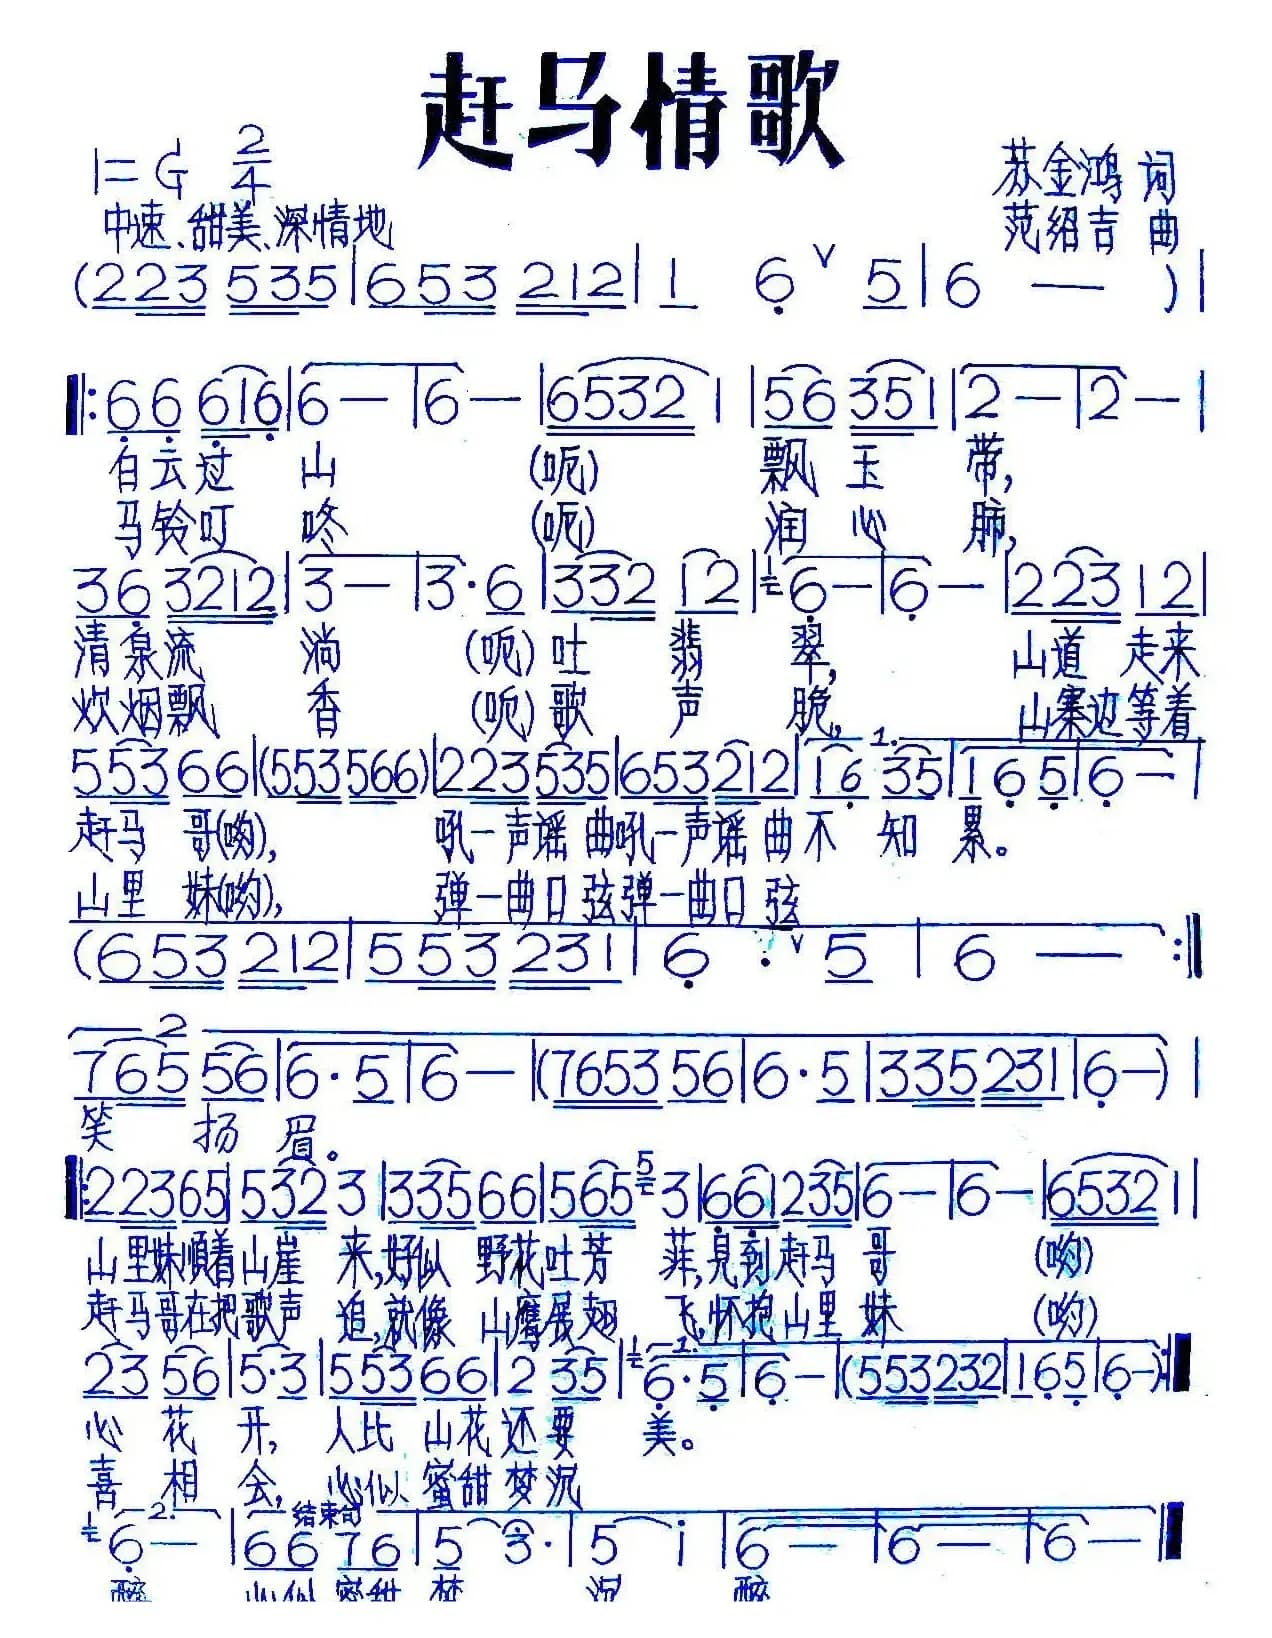 赶马情歌
1=G 2/4
苏金鸿 词
中速、甜美、深情地
范绍吉 曲
(223 535|653 212|1 6 ∨ 5|6 — )|
‖:66 616|6—|6—|6532 1|56 351|2—|2—|
白云过 山 (呃) 飘 玉 带,
马铃叮 咚 (呃) 润 心 肺,
36 3212|3—|3·6|332 12|6—|6—|223 12|
清泉流 淌 (呃)吐 翡 翠, 山道 走来
炊烟飘 香 (呃)歌 声 脆, 山寨边等着
1.
553 66|(553 566)|223 535|653 212|16 35|165|6—|
赶马 哥(哟), 吼一声谣 曲吼一声谣 曲不 知 累。
山里 妹(哟), 弹一曲口 弦弹一曲口 弦
(653 212|553 231|6 · ∨ 5|6 — :‖
2
765 56|6·5|6—|(7653 56|6·5|335 231|6—)|
笑 扬 眉。
‖:223 65|532 3|335 66|565 5 3|661 235|6—|6—|6532 1|
山里妹顺着山崖 来,好似 野花吐芳 菲,见到赶马 哥 (哟)
赶马哥在把歌声 追,就像 山鹰展翅 飞,怀抱山里 妹 (哟)
1.
23 56|5·3|553 66|2 35|6·5|6—|(553 232|165|6—):‖
心 花 开, 人比 山花还要 美。
喜 相 会, 心似 蜜甜梦沉
2. 结束句
6—|66 76|5 3·|5 i|6—|6—|6—‖
醉 心似 蜜甜 梦 沉 醉